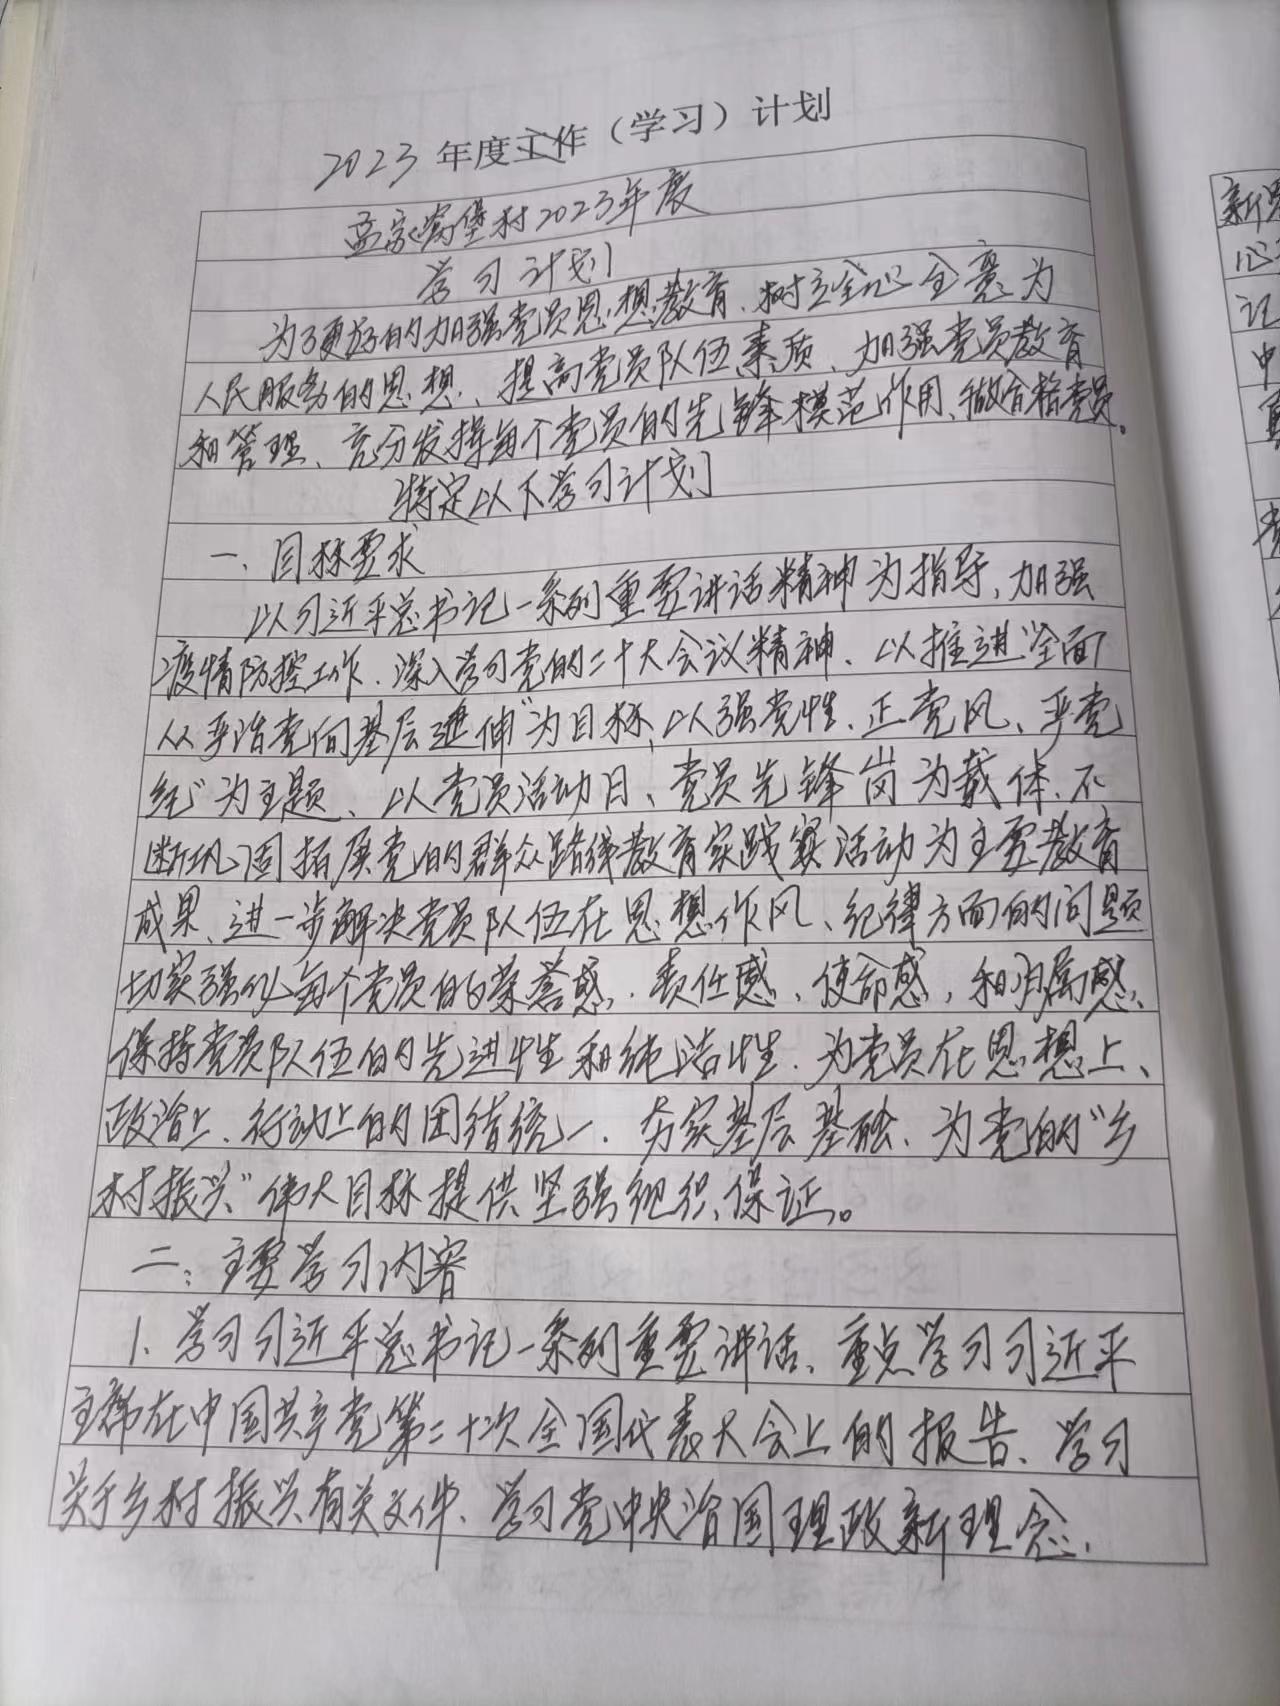 2023 年度工作（学习）计划
孟家窝堡村2023年度
学习计划
为了更好的加强党员思想教育、树立全心全意为
人民服务的思想、提高党员队伍素质、加强党员教育
和管理、充分发挥每个党员的先锋模范作用、做合格党员。
特定以下学习计划
一、目标要求
以习近平总书记一系列重要讲话精神为指导、加强
疫情防控工作、深入学习党的二十大会议精神、以推进“全面
从严治党向基层延伸”为目标、以强党性、正党风、严党
纪”为主题、以党员活动日、党员先锋岗为载体、不
断巩固拓展党的群众路线教育实践活动为主要教育
成果、进一步解决党员队伍在思想作风、纪律方面的问题
切实强化每个党员的荣誉感、责任感、使命感，和归属感、
保持党员队伍的先进性和纯洁性、为党员在思想上、
政治上、行动上的团结统一、夯实基层基础、为党的“乡
村振兴”伟大目标提供坚强组织保证。
二：主要学习内容
1、学习习近平总书记一系列重要讲话、重点学习习近平
主席在中国共产党第二十次全国代表大会上的报告、学习
关于乡村振兴有关文件、学习党中央治国理政新理念、
新
心
记
中